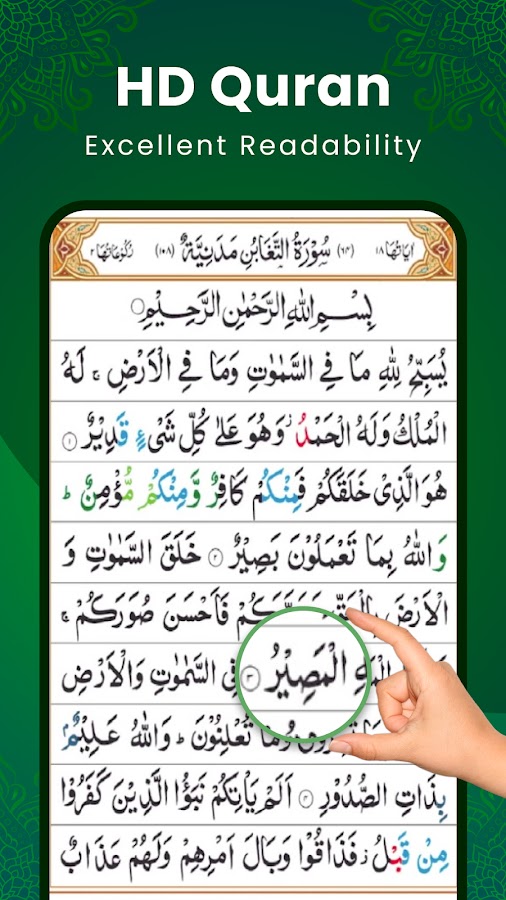 HD Quran
Excellent Readability
اٰيَاتُهَا ١٨ (٦٤) سُوْرَةُ التَّغَابُنِ مَدَنِيَّةٌ (١٠٨) رُكُوْعَاتُهَا ٢
بِسْمِ اللّٰهِ الرَّحْمٰنِ الرَّحِيْمِ
يُسَبِّحُ لِلّٰهِ مَا فِي السَّمٰوٰتِ وَمَا فِي الْاَرْضِ ۚ لَهُ
الْمُلْكُ وَلَهُ الْحَمْدُ ۫ وَهُوَ عَلٰى كُلِّ شَيْءٍ قَدِيْرٌ ١
هُوَ الَّذِيْ خَلَقَكُمْ فَمِنْكُمْ كَافِرٌ وَّمِنْكُمْ مُّؤْمِنٌ ؕ
وَاللّٰهُ بِمَا تَعْمَلُوْنَ بَصِيْرٌ ٢ خَلَقَ السَّمٰوٰتِ وَ
الْاَرْضَ بِالْحَقِّ وَصَوَّرَكُمْ فَاَحْسَنَ صُوَرَكُمْ ۚ
الْمَصِيْرُ ٣ فِي السَّمٰوٰتِ وَالْاَرْضِ
وَمَا تُعْلِنُوْنَ ؕ وَاللّٰهُ عَلِيْمٌۢ
بِذَاتِ الصُّدُوْرِ ٤ اَلَمْ يَاْتِكُمْ نَبَؤُا الَّذِيْنَ كَفَرُوْا
مِنْ قَبْلُ ؗ فَذَاقُوْا وَبَالَ اَمْرِهِمْ وَلَهُمْ عَذَابٌ